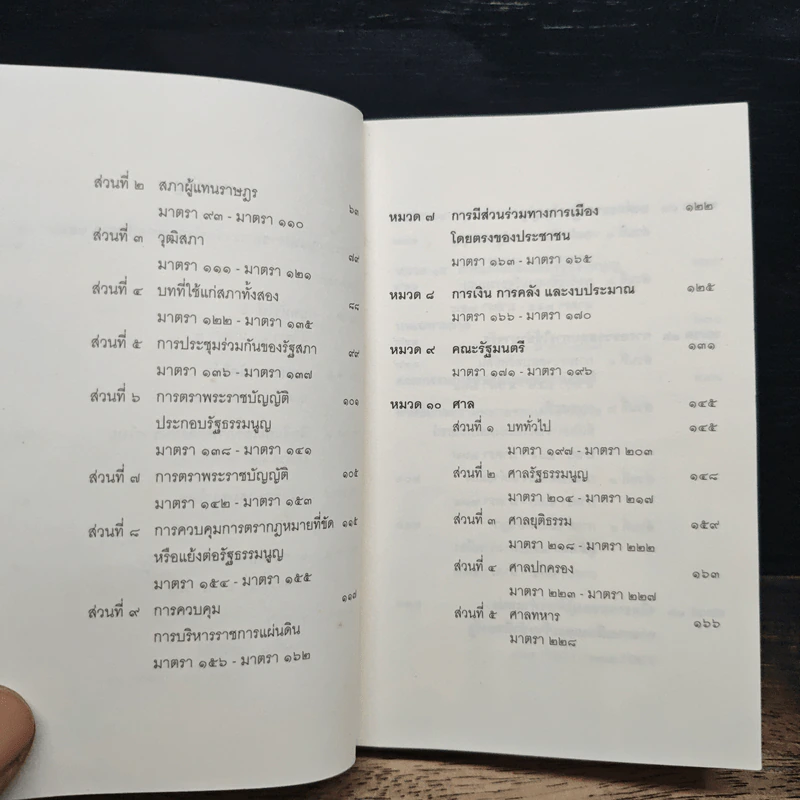 ส่วนที่ ๒ สภาผู้แทนราษฎร ๖๓
มาตรา ๙๓ - มาตรา ๑๑๐
ส่วนที่ ๓ วุฒิสภา ๗๙
มาตรา ๑๑๑ - มาตรา ๑๒๑
ส่วนที่ ๔ บทที่ใช้แก่สภาทั้งสอง ๘๘
มาตรา ๑๒๒ - มาตรา ๑๓๕
ส่วนที่ ๕ การประชุมร่วมกันของรัฐสภา ๙๙
มาตรา ๑๓๖ - มาตรา ๑๓๗
ส่วนที่ ๖ การตราพระราชบัญญัติ ๑๐๑
ประกอบรัฐธรรมนูญ
มาตรา ๑๓๘ - มาตรา ๑๔๑
ส่วนที่ ๗ การตราพระราชบัญญัติ ๑๐๕
มาตรา ๑๔๒ - มาตรา ๑๕๓
ส่วนที่ ๘ การควบคุมการตรากฎหมายที่ขัด ๑๑๕
หรือแย้งต่อรัฐธรรมนูญ
มาตรา ๑๕๔ - มาตรา ๑๕๕
ส่วนที่ ๙ การควบคุม ๑๑๗
การบริหารราชการแผ่นดิน
มาตรา ๑๕๖ - มาตรา ๑๖๒
หมวด ๗ การมีส่วนร่วมทางการเมือง ๑๒๒
โดยตรงของประชาชน
มาตรา ๑๖๓ - มาตรา ๑๖๕
หมวด ๘ การเงิน การคลัง และงบประมาณ ๑๒๕
มาตรา ๑๖๖ - มาตรา ๑๗๐
หมวด ๙ คณะรัฐมนตรี ๑๓๑
มาตรา ๑๗๑ - มาตรา ๑๙๖
หมวด ๑๐ ศาล ๑๔๕
ส่วนที่ ๑ บททั่วไป ๑๔๕
มาตรา ๑๙๗ - มาตรา ๒๐๓
ส่วนที่ ๒ ศาลรัฐธรรมนูญ ๑๔๘
มาตรา ๒๐๔ - มาตรา ๒๑๗
ส่วนที่ ๓ ศาลยุติธรรม ๑๕๙
มาตรา ๒๑๘ - มาตรา ๒๒๒
ส่วนที่ ๔ ศาลปกครอง ๑๖๓
มาตรา ๒๒๓ - มาตรา ๒๒๗
ส่วนที่ ๕ ศาลทหาร ๑๖๖
มาตรา ๒๒๘